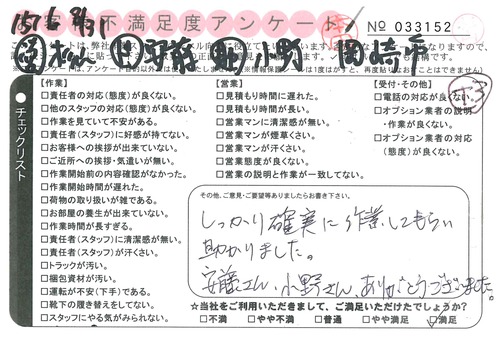 不満足度アンケート
No 033152
小野 岡崎市
チェックリスト
【作業】
□責任者の対応(態度)が良くない。
□他のスタッフの対応(態度)が良くない。
□作業を見ていて不安がある。
□責任者(スタッフ)に好感が持てない。
□お客様への挨拶が出来ていない。
□ご近所への挨拶・気遣いが無い。
□作業開始前の内容確認がなかった。
□作業開始時間が遅れた。
□荷物の取り扱いが雑である。
□お部屋の養生が出来ていない。
□作業時間が長すぎる。
□責任者(スタッフ)に清潔感が無い。
□責任者(スタッフ)が汗くさい。
□トラックが汚い。
□梱包資材が汚い。
□運転が不安(下手)である。
□靴下の履き替えをしてない。
□スタッフにやる気がみられない。
【営業】
□見積もり時間に遅れた。
□見積もり時間が長い。
□営業マンに清潔感が無い。
□営業マンが煙草くさい。
□営業マンが汗くさい。
□営業態度が良くない。
□営業の説明と作業が一致してない。
【受付・その他】
□電話の対応が良くない。
□オプション業者の説明
・作業が良くない。
□オプション業者の対応
(態度)が良くない。
その他、ご意見・ご要望等ありましたらお書き下さい。
しっかり確実に作業してもらい
助かりました。
安藤さん、小野さん、ありがとうございました。
☆当社をご利用いただきまして、ご満足いただけたでしょうか?
□不満 □やや不満 □普通 □やや満足 □満足